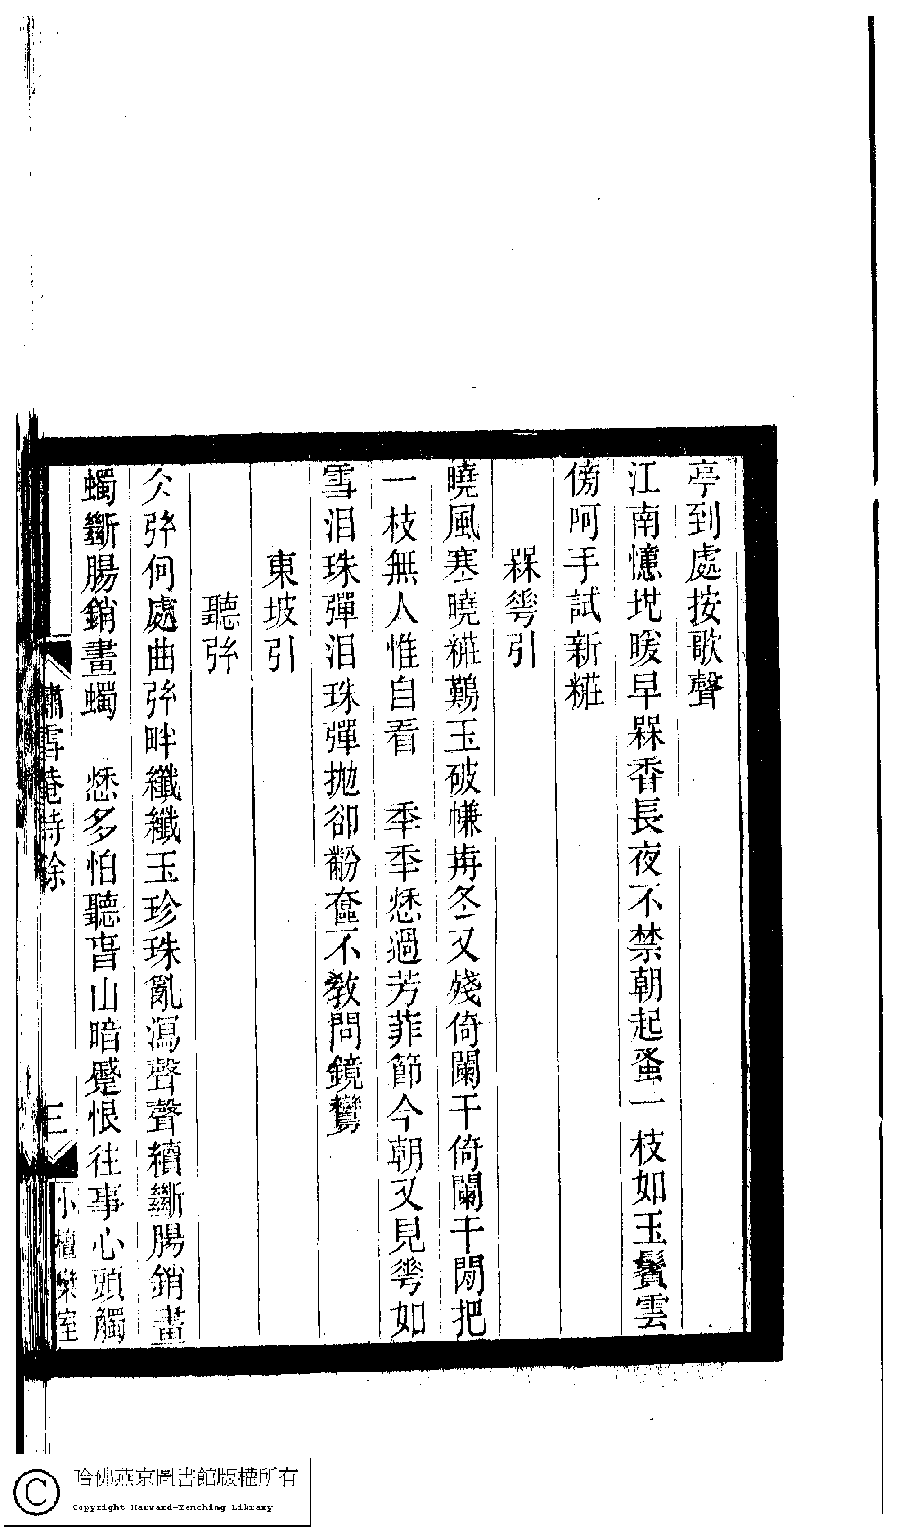 亭到處按歌聲
江南憶地暖早槑香長夜不禁朝起蚤一枝如玉鬢雲
傍阿手試新糚
槑蕚引
曉風寒曉糚難玉破㡘冉冬又殘倚闌干倚闌干閒把
一枝無人惟自看　秊秊愁過芳菲節今朝又見蕚如
雪泪珠彈泪珠彈拋卻粉奩不敎問鏡鸞
東坡引
聽
何處曲
畔纖纖玉珍珠亂瀉聲聲續斷腸銷畫
蠋斷腸銷畫蠋　愁多怕聽眉山暗蹙恨往事心頭觸
繡雪菴詩餘
三
小檀欒室
哈佛燕京圖書館版權所有
Copyright Harvard-Yenching Library